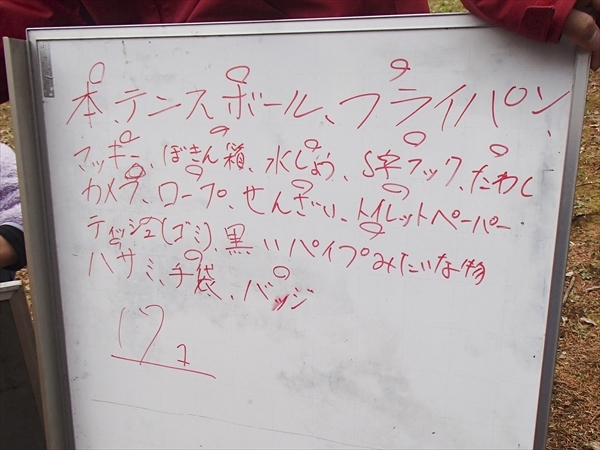 本、テンスボール、フライパン、
マッキー、ぼきん箱、水じょう、S字フック、たわし
カメラ、ロープ、せんざい、トイレットペーパー
ティッシュ(ゴミ)、黒いパイプみたいな物
ハサミ、手袋、バッジ
17コ